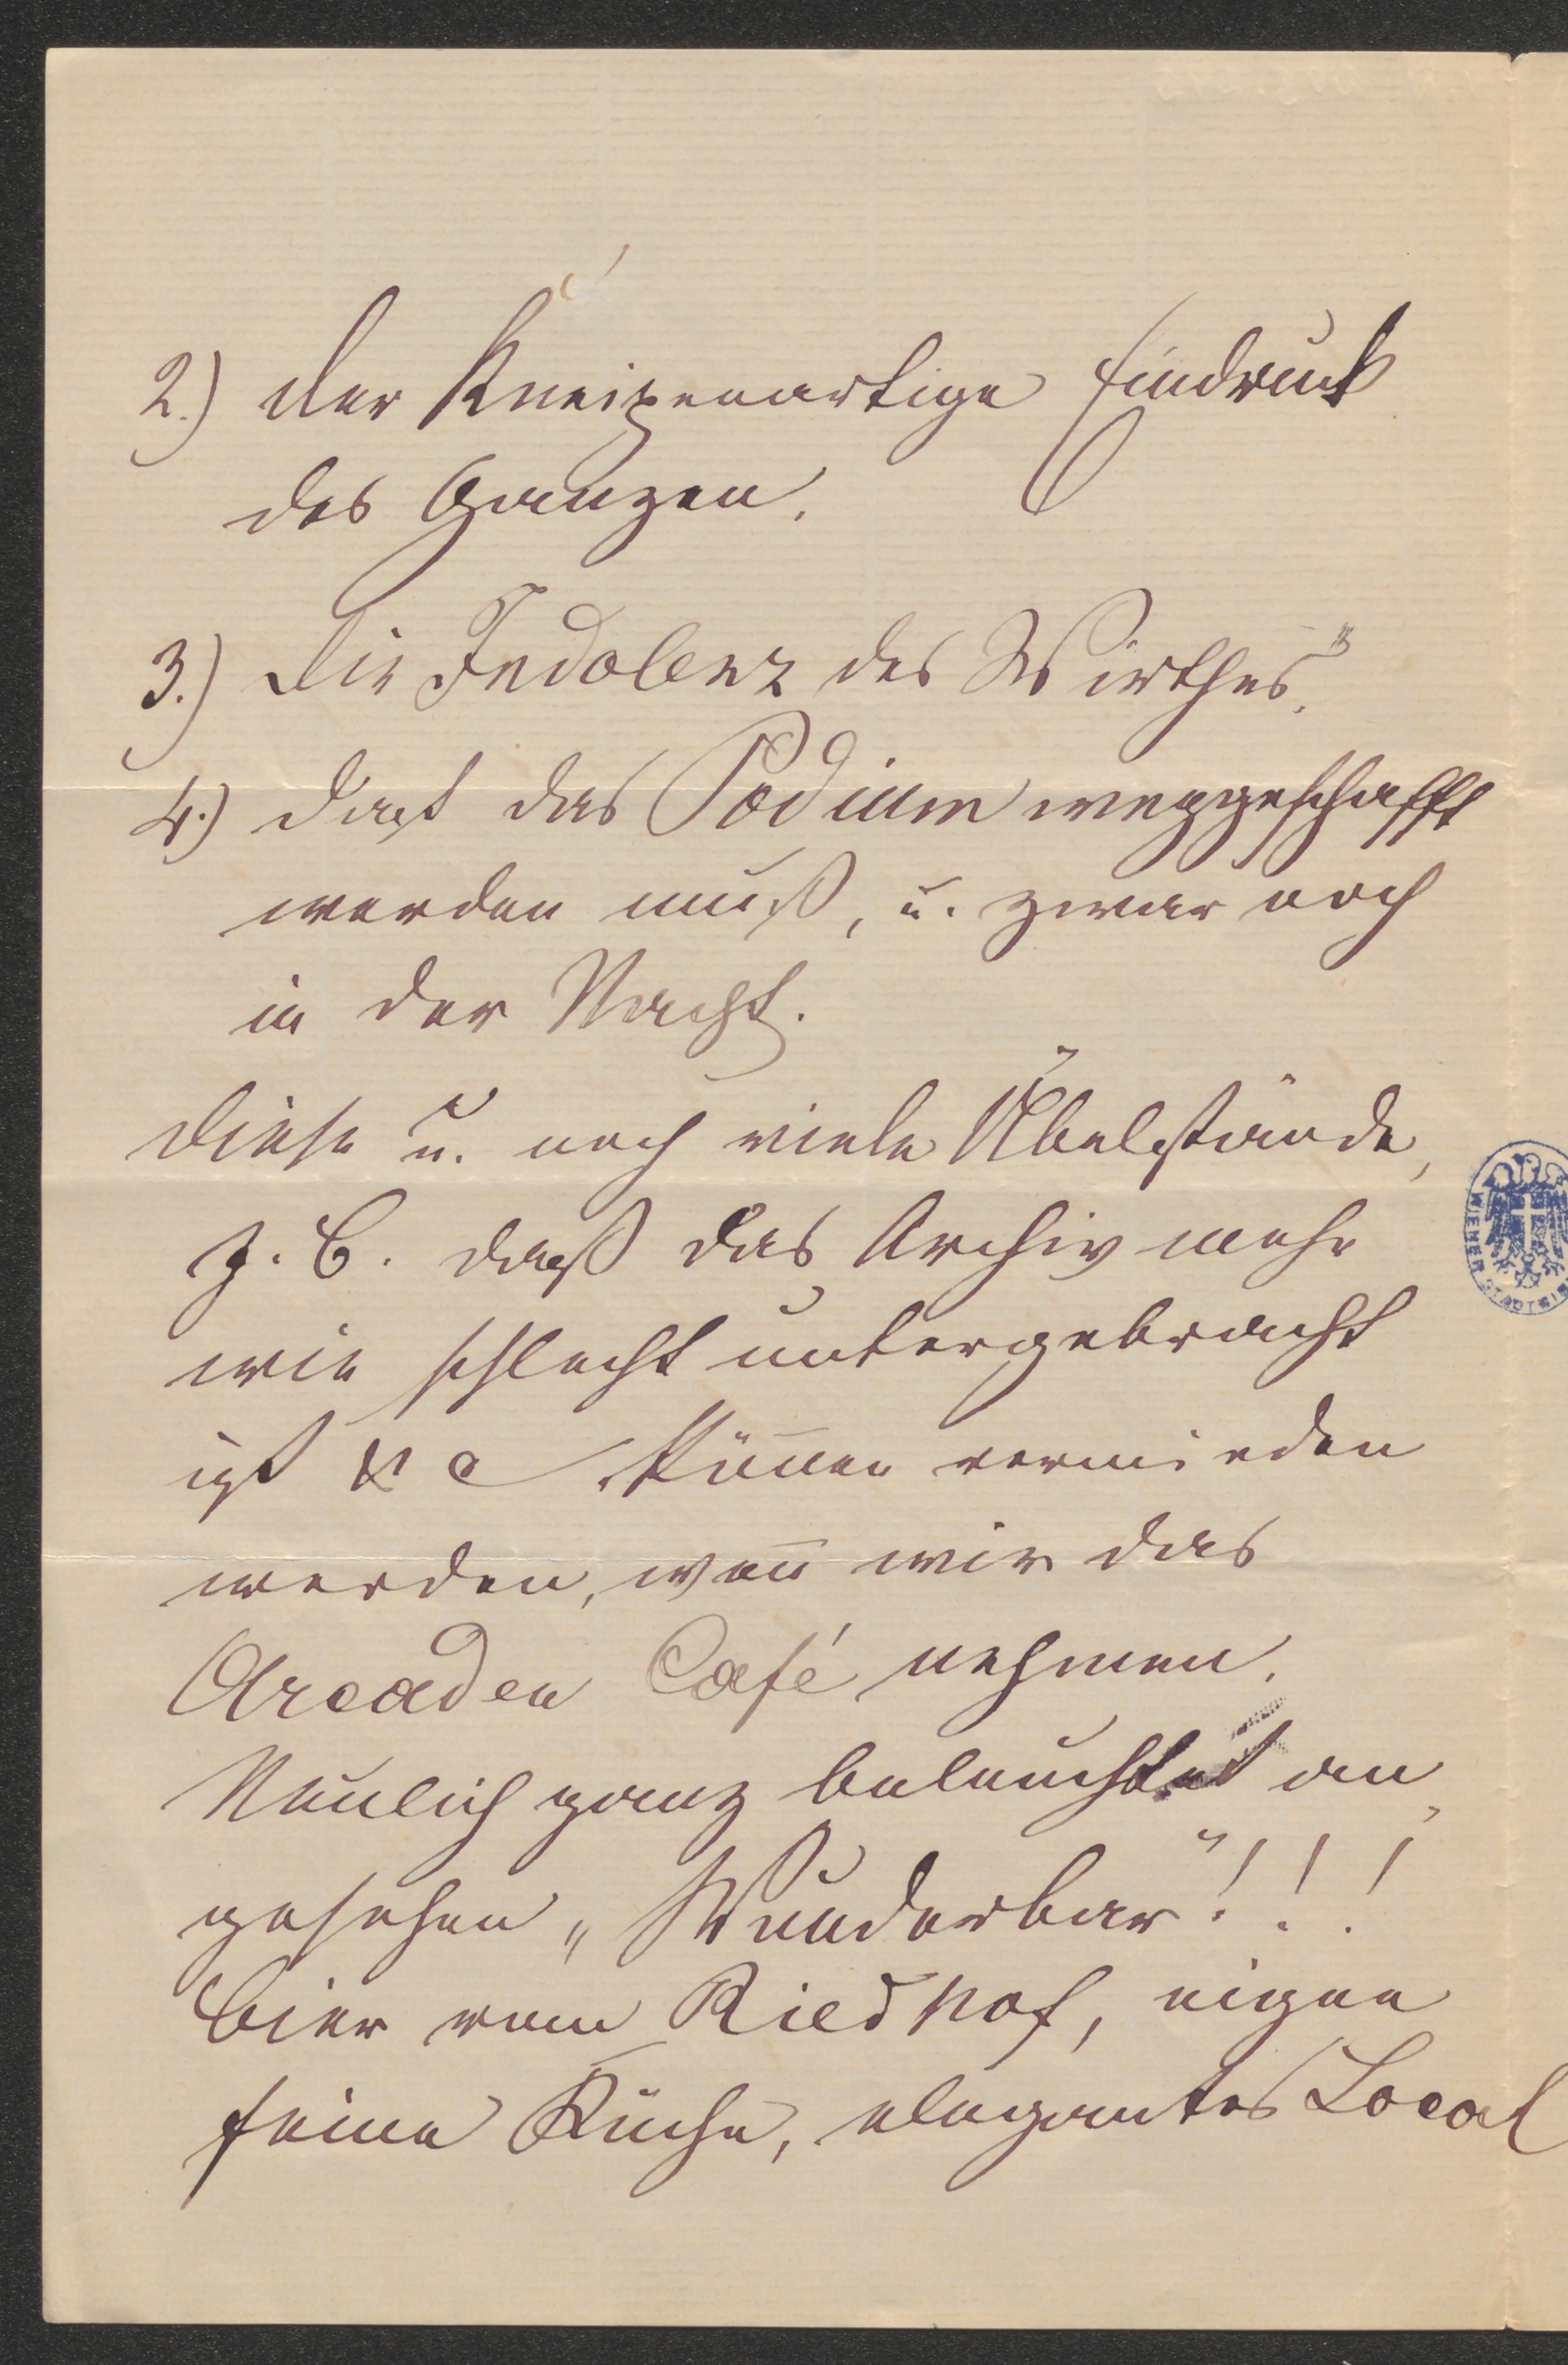 2.) Der Kneipenartige Eindruck
des Ganzen.
3.) Die Indolenz des Wirthes.
4.) Daß das Podium weggeschafft
werden muß, u. zwar noch
in der Nacht.
Diese u. noch viele Übelstände,
z. B. daß das Archiv mehr
wie schlecht untergebracht
ist &c können vermieden
werden, wenn wir das
Arcaden Café nehmen.
Neulich ganz beleuchtet an
gesehen, „Wunderbar"!!!
Bier vom Riedhof, eigene
feine Küche, elegantes Local
WIENER STADTBI